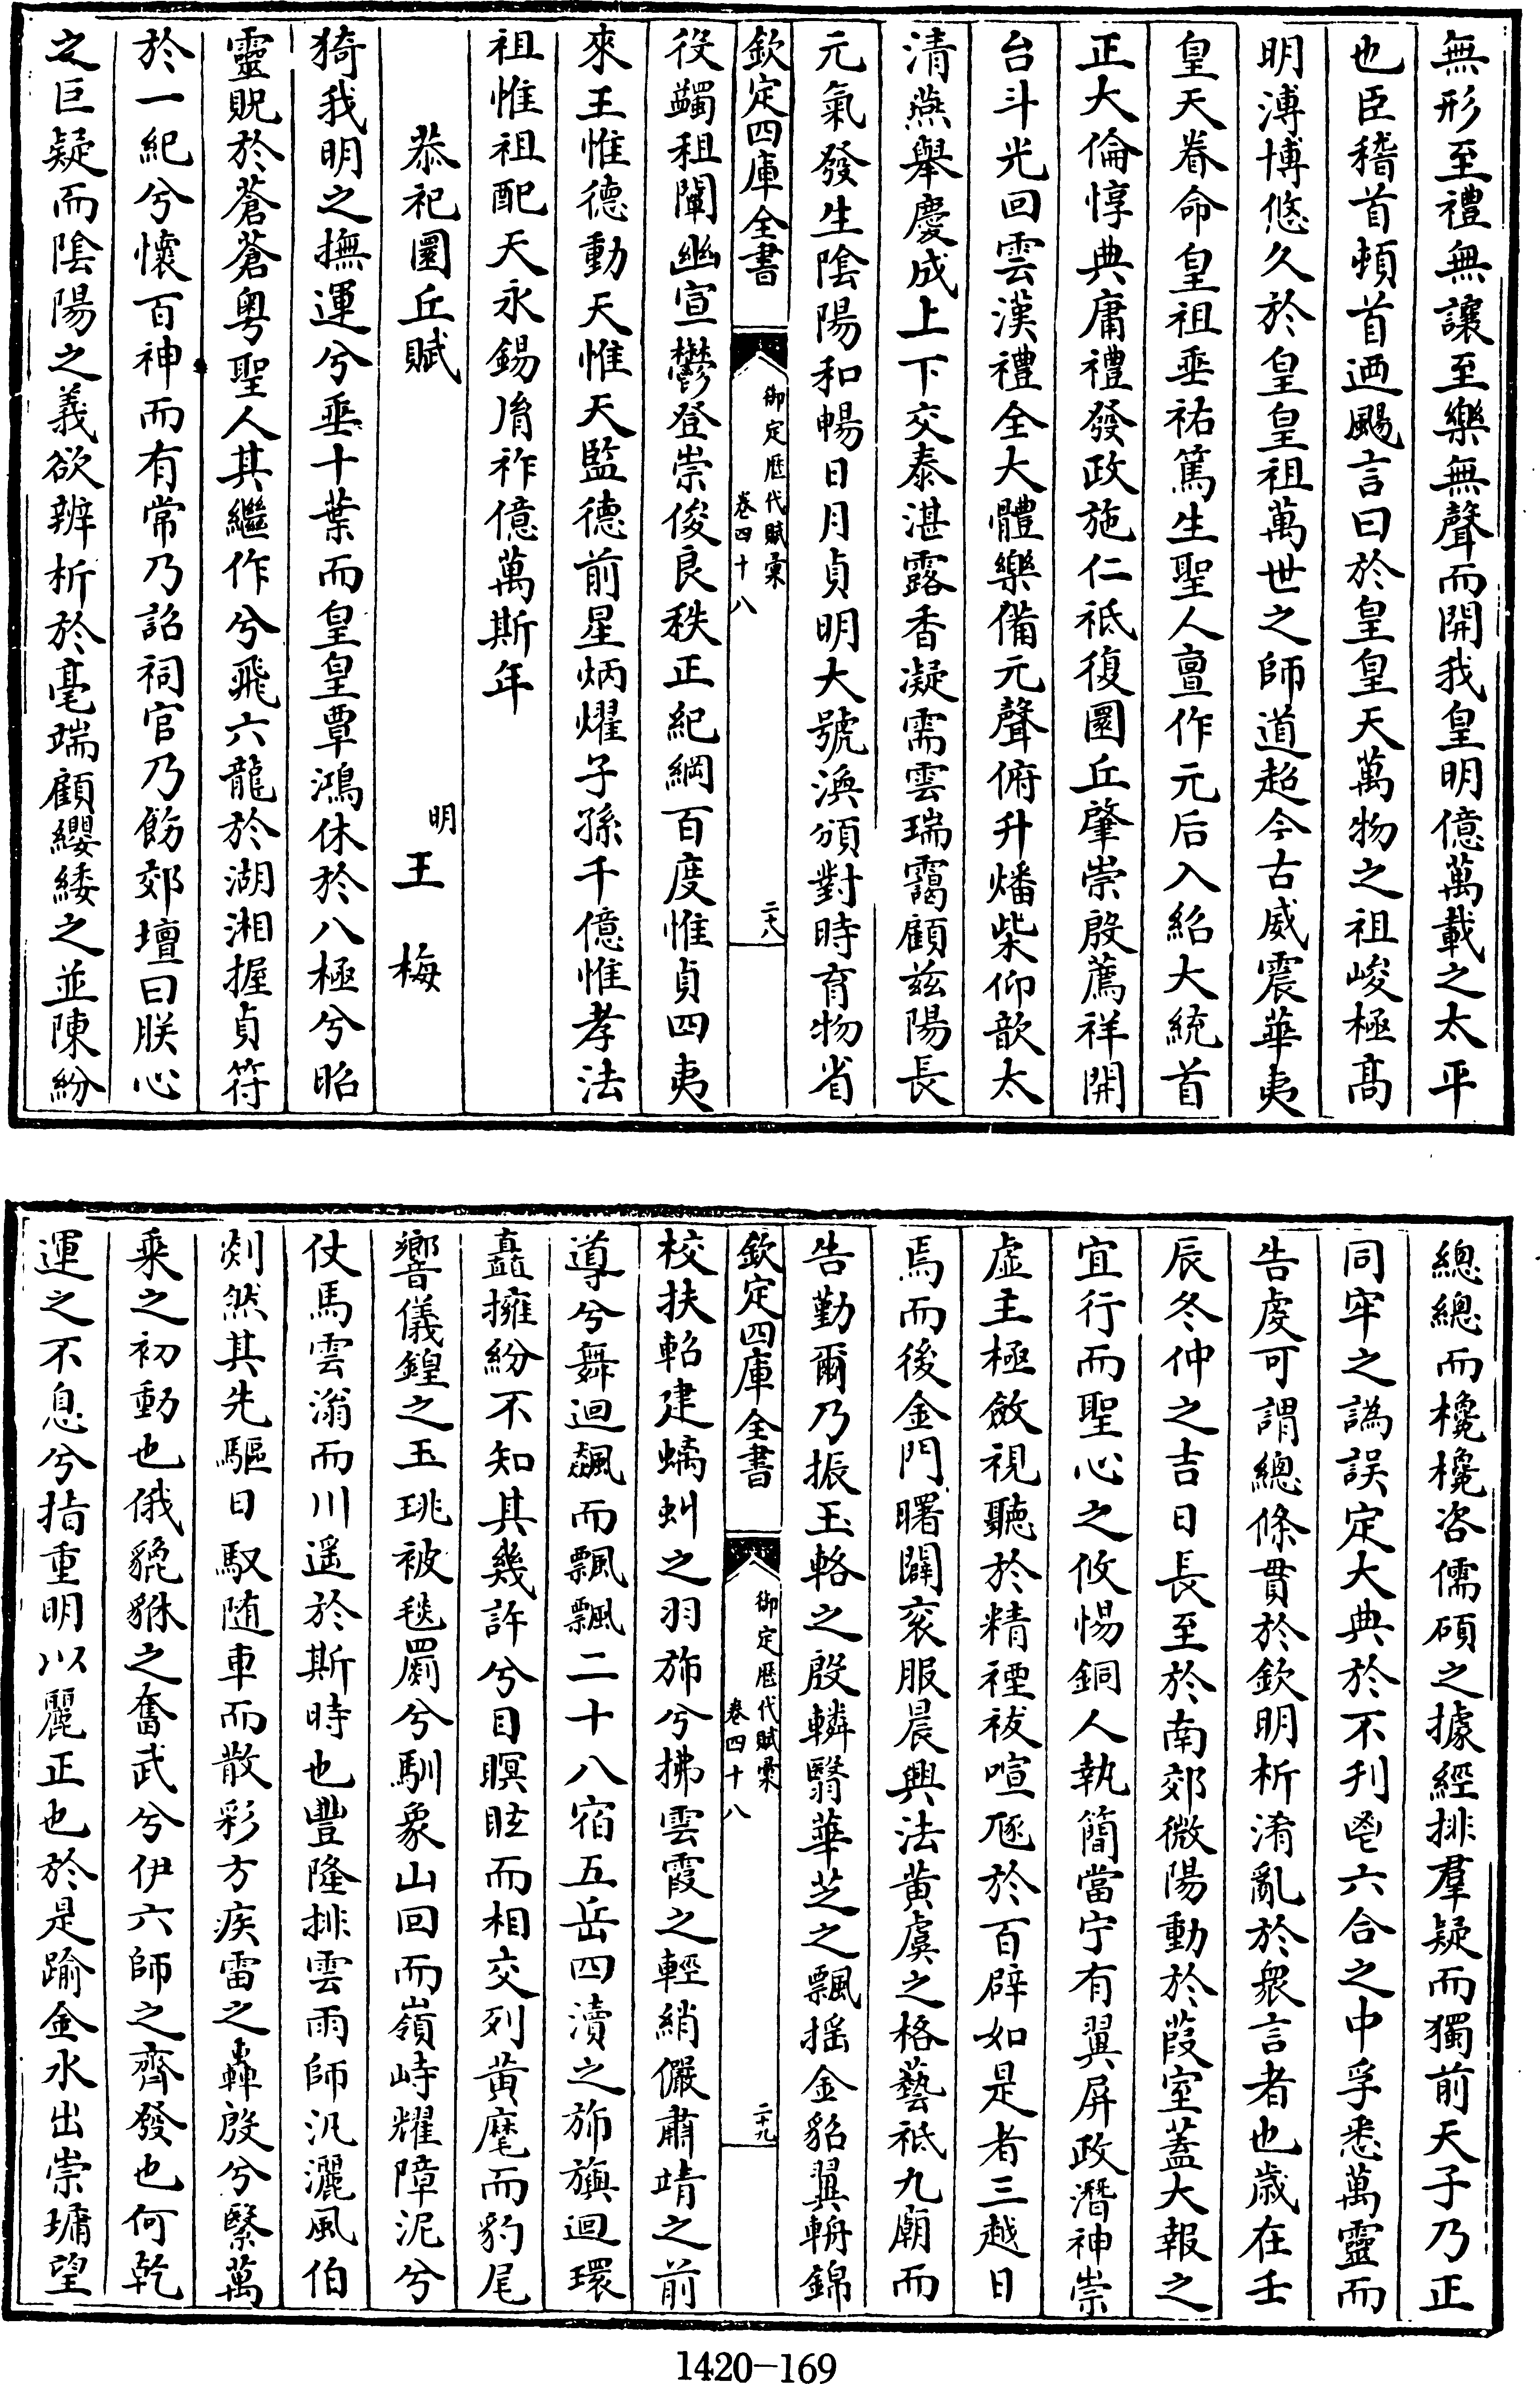 無形至禮無讓至樂無聲而開我皇明億萬載之太平
也臣稽首頓首迺颺言曰於皇皇天萬物之祖峻極高
明溥博悠久於皇皇祖萬世之師道超今古威震華夷
皇天眷命皇祖垂祐篤生聖人亶作元后入紹大統首
正大倫惇典庸禮發政施仁祗復圜丘肇崇殷薦祥開
台斗光回雲漢禮全大體樂備元聲俯升燔柴仰歆太
清燕舉慶成上下交泰湛露香凝需雲瑞靄顧兹陽長
元氣發生陰陽和暢日月貞明大號渙頒對時育物省
欽定四庫全書
御定歴代賦彙
卷四十八
二十八
役蠲租闡幽宣鬱登崇俊良秩正紀綱百度惟貞四夷
來王惟德動天惟天監德前星炳燿子孫千億惟孝法
祖惟祖配天永錫胤祚億萬斯年
恭祀圜丘賦
明
王梅
猗我明之撫運兮垂十葉而皇皇覃鴻休於八極兮昭
靈貺於蒼蒼粤聖人其繼作兮飛六龍於湖湘握貞符
於一紀兮懷百神而有常乃詔祠官乃飭郊壇曰朕心
之巨疑而陰陽之義欲辨析於毫端顧纓緌之並陳紛
總總而欃欃咨儒碩之據經排羣疑而獨前天子乃正
同牢之譌誤定大典於不刋鬯六合之中孚悉萬靈而
告虔可謂總條貫於欽明析淆亂於衆言者也歲在壬
辰冬仲之吉日長至於南郊微陽動於葭室蓋大報之
宜行而聖心之攸惕銅人執簡當宁有翼屏政潛神崇
虛主極斂視聽於精禋祓喧豗於百辟如是者三越日
焉而後金門曙闢衮服晨興法黄虞之格藝祗九廟而
告勤爾乃振玉輅之殷轔翳華芝之飄摇金貂翼輈錦
欽定四庫全書
御定歴代賦彙
卷四十八
二十九
校扶軺建螭虯之羽斾兮拂雲霞之輕綃儼肅靖之前
導兮舞迴飇而飄飄二十八宿五岳四瀆之斾旟迴環
纛擁紛不知其幾許兮目瞑眩而相交列黄麾而豹尾
響儀鍠之玉珧被毯罽兮馴象山回而嶺峙耀障泥兮
仗馬雲滃而川遥於斯時也豐隆排雲雨師汎灑風伯
剡然其先驅日馭随車而散彩方疾雷之轟殷兮繄萬
乘之初動也俄貔貅之奮武兮伊六師之齊發也何乾
運之不息兮指重明以麗正也於是踰金水出崇墉望
1420-169